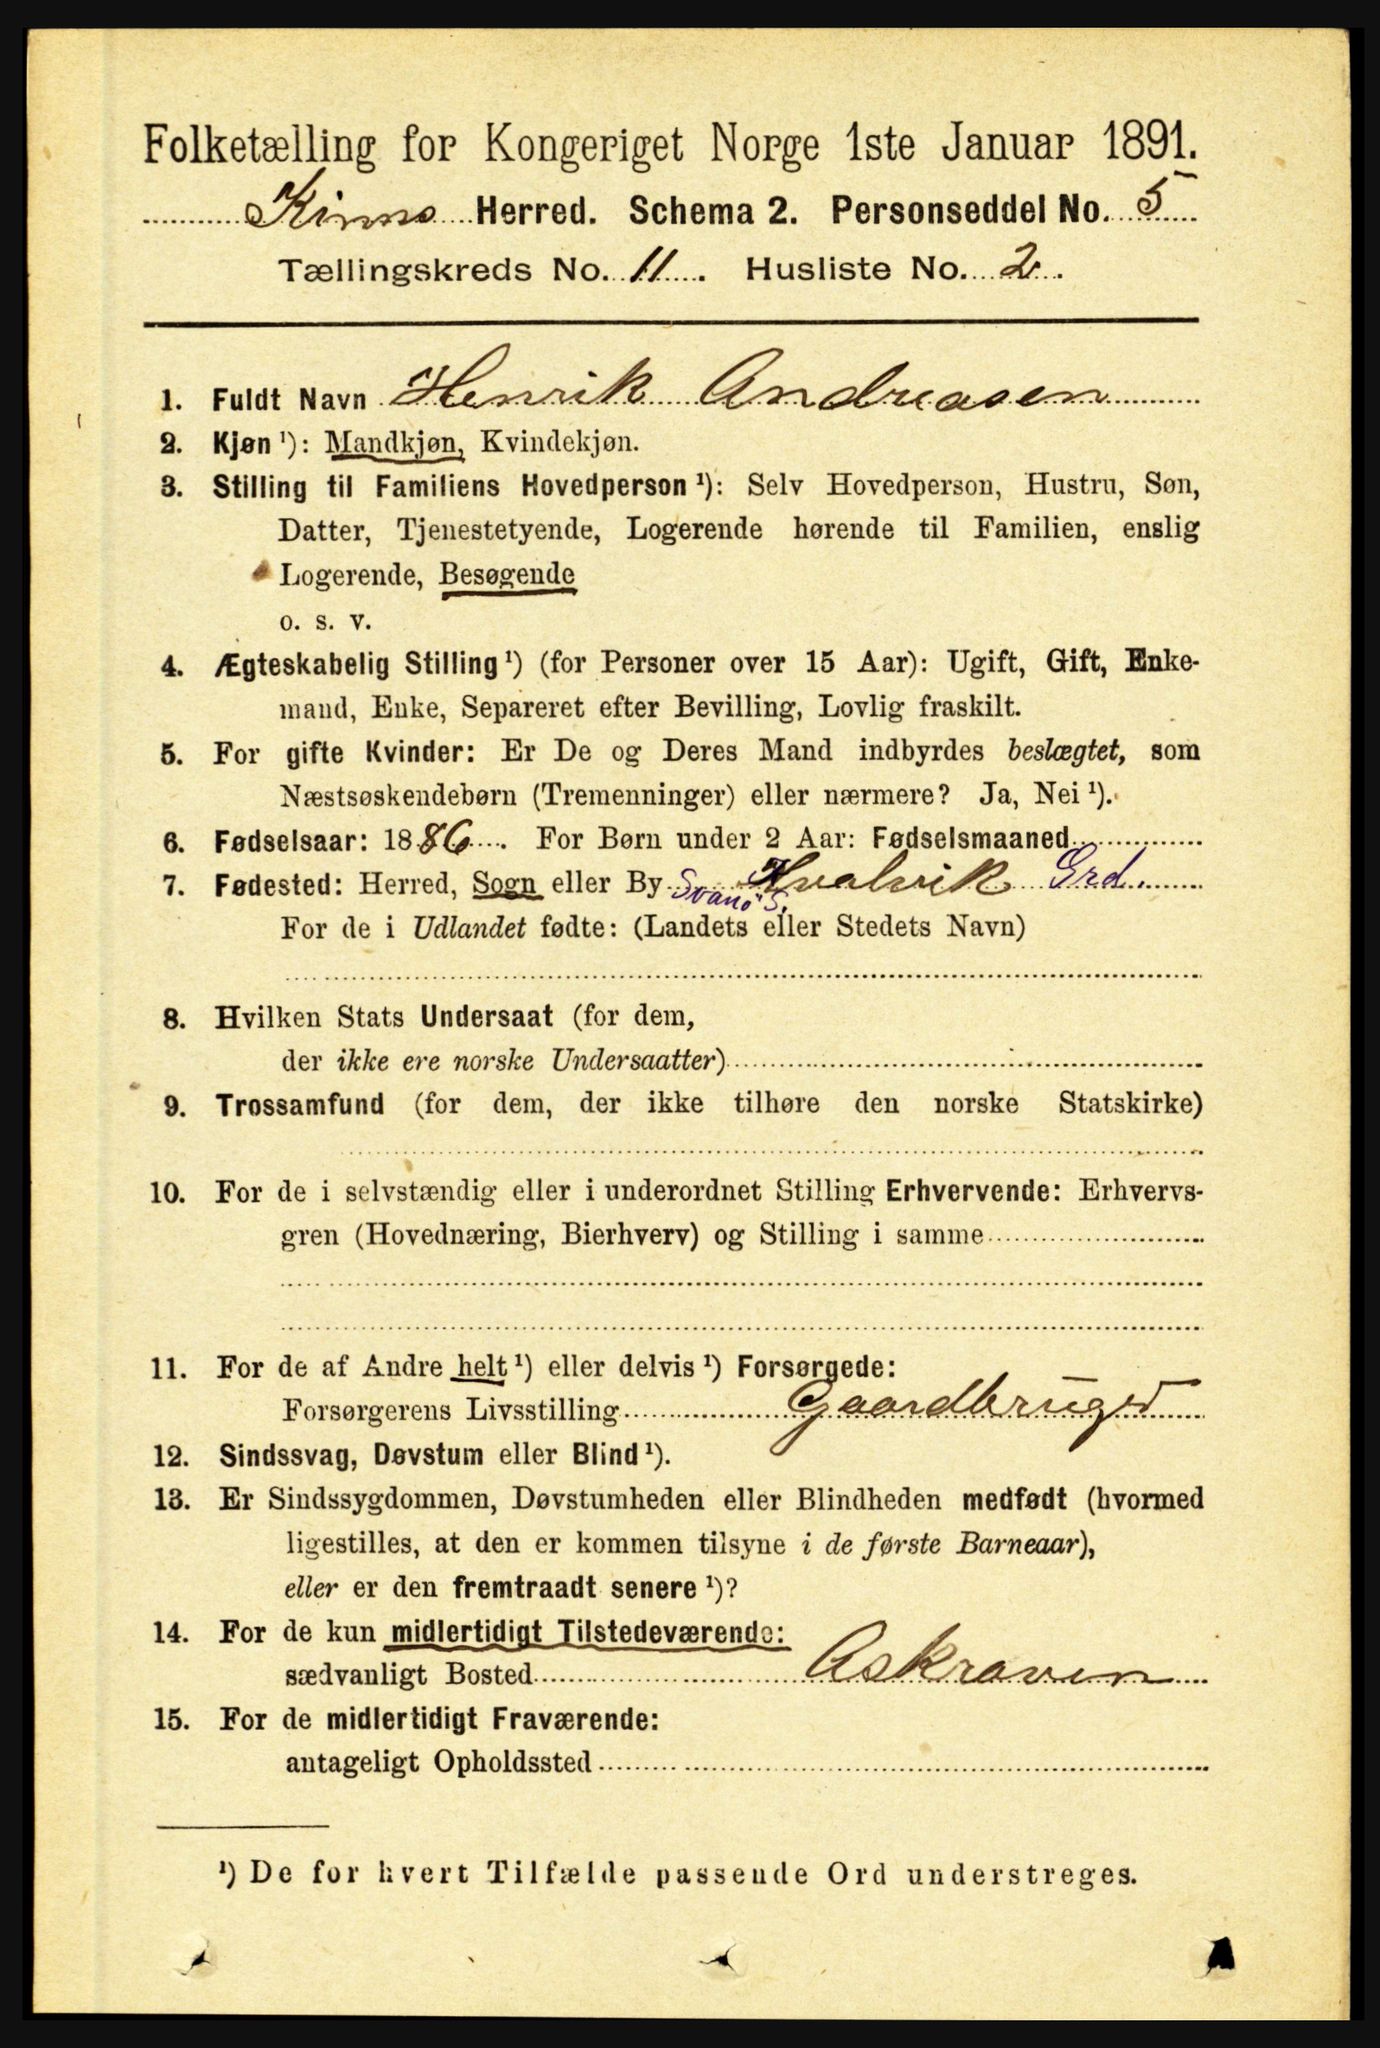 Folketælling for Kongeriget Norge 1ste Januar 1891.
Kinns Herred. Schema 2. Personseddel No. 5
Tællingskreds No. 11. Husliste No. 2.
1. Fuldt Navn Henrik Andreasen
2. Kjøn¹): Mandkjøn, Kvindekjøn.
3. Stilling til Familiens Hovedperson¹): Selv Hovedperson, Hustru, Søn,
Datter, Tjenestetyende, Logerende hørende til Familien, enslig
Logerende, Besøgende
o. s. v.
4. Ægteskabelig Stilling¹) (for Personer over 15 Aar): Ugift, Gift, Enke-
mand, Enke, Separeret efter Bevilling, Lovlig fraskilt.
5. For gifte Kvinder: Er De og Deres Mand indbyrdes beslægtet, som
Næstsøskendebørn (Tremenninger) eller nærmere? Ja, Nei¹).
6. Fødselsaar: 1886. For Børn under 2 Aar: Fødselsmaaned
7. Fødested: Herred, Sogn eller By Kvalvik Grd.
Svanø S.
For de i Udlandet fødte: (Landets eller Stedets Navn)
8. Hvilken Stats Undersaat (for dem,
der ikke ere norske Undersaatter)
9. Trossamfund (for dem, der ikke tilhøre den norske Statskirke)
10. For de i selvstændig eller i underordnet Stilling Erhvervende: Erhvervs-
gren (Hovednæring, Bierhverv) og Stilling i samme
11. For de af Andre helt¹) eller delvis¹) Forsørgede:
Forsørgerens Livsstilling Gaardbruger
12. Sindssvag, Døvstum eller Blind¹).
13. Er Sindssygdommen, Døvstumheden eller Blindheden medfødt (hvormed
ligestilles, at den er kommen tilsyne i de første Barneaar),
eller er den fremtraadt senere¹)?
14. For de kun midlertidigt Tilstedeværende:
sædvanligt Bosted Askroven
15. For de midlertidigt Fraværende:
antageligt Opholdssted
¹) De for hvert Tilfælde passende Ord understreges.